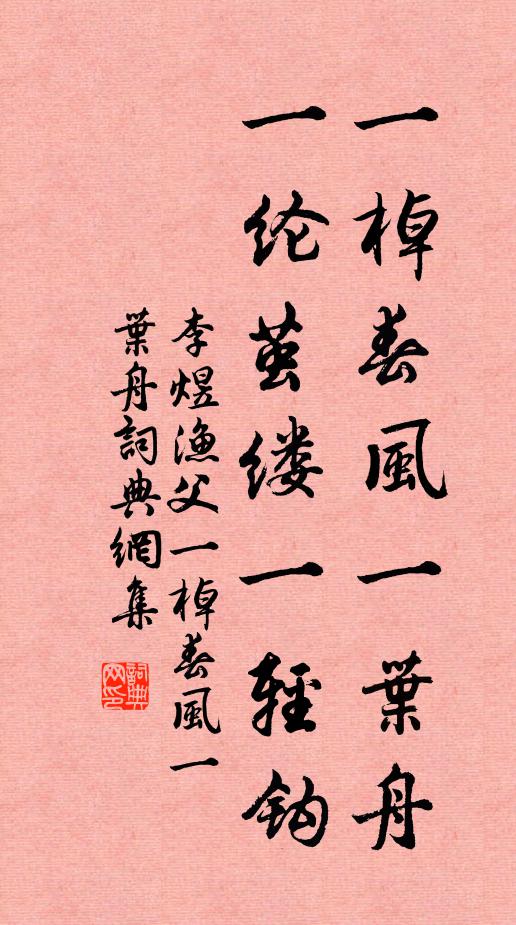 一棹春風一葉舟
一纶茧缕一輕钩
李煜漁父一棹春風一
葉舟詞典網集
詞典网印